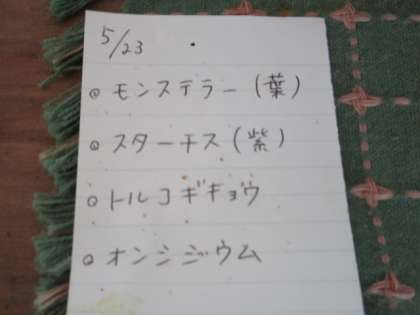 5/23
◎ モンステラー(葉)
◎ スターチス(紫)
◎ トルコギキョウ
◎ オンシジウム